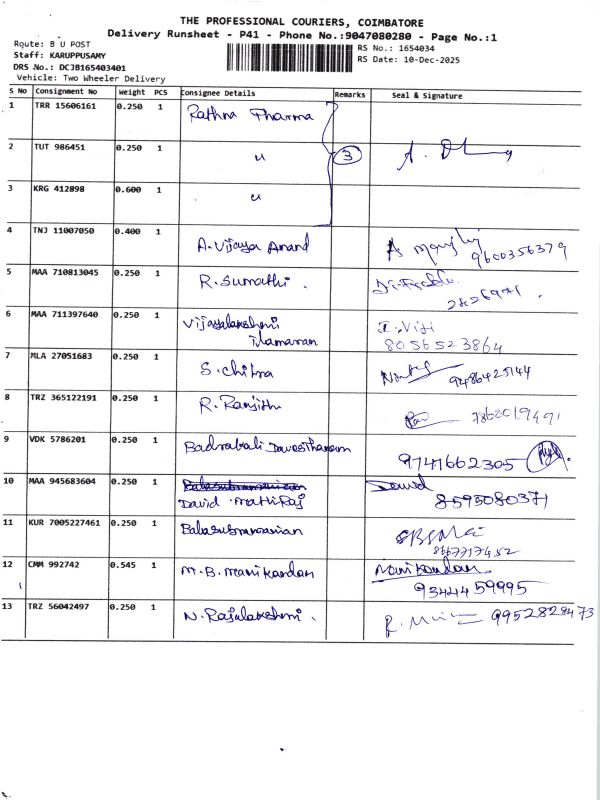 THE PROFESSIONAL COURIERS, COIMBATORE
Delivery Runsheet - P41 - Phone No.:9047080280 - Page No.:1
Route: B U POST
RS No.: 1654034
Staff: KARUPPUSAMY
RS Date: 10-Dec-2025
DRS No.: DCJB165403401
Vehicle: Two Wheeler Delivery
S No Consignment No Weight PCS Consignee Details Remarks Seal & Signature
1 TRR 15606161 0.250 1 Rathna Pharma
2 TUT 986451 0.250 1 u 3
3 KRG 412898 0.600 1 u
4 TNJ 11007050 0.400 1 A. Vijaya Anand 9600356379
5 MAA 710813045 0.250 1 R. Sumathi.
6 MAA 711397640 0.250 1 Vijayalakshmi I. Viji
Ilamaran 8056523864
7 MLA 27051683 0.250 1 S. Chitra 9486425144
8 TRZ 365122191 0.250 1 R. Ranjith 7862019491
9 VDK 5786201 0.250 1 Badrabali 9741662305
10 MAA 945683604 0.250 1 Balasubramanian David
David Mathiraj 8595080371
11 KUR 7005227461 0.250 1 Balasubramanian
8667717452
12 CMM 992742 0.545 1 M.B. Manikandan Manikandan.
9344459995
13 TRZ 56042497 0.250 1 N. Rajalakshmi. 9952829473